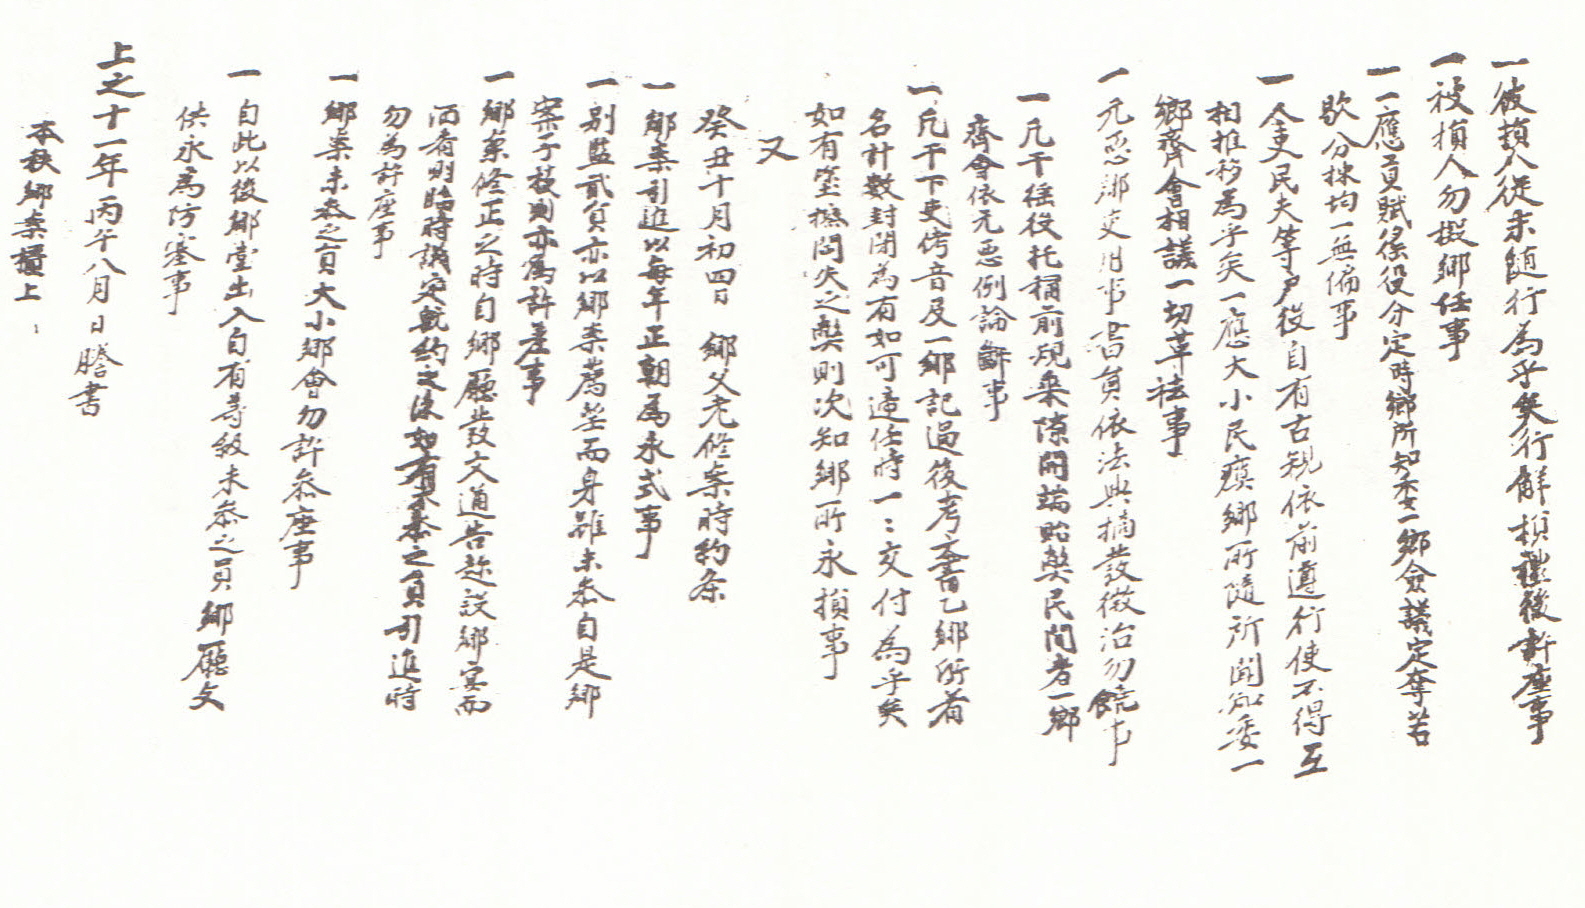 一被損人從未随行為乎矣行解損徵後許座事
一被損人勿擬鄉任事
一一應貢賦徭役分定時鄉所知委一鄉僉議定奪若
歇分揀均一無偏事
一人吏民夫等戶役自有古規依前遵行使不得互
相推移為乎矣一應大小民瘼鄉所隨所聞知委一
鄉齊會相議一切革祛事
一元惡鄉吏用事書員依法典摘發徵治勿饒事
一凡干徭役托稱前規乘隙開端貽弊民間者一鄉
齊會依元惡例論斷事
一凡干下吏傳音及一鄉記過後考文書乙鄉所着
名計數封閉為有如可遞任時一ㄷ交付為乎矣
如有塗擦閪失之弊則次知鄉所永損事
又
癸丑十月初四日 鄉父老修案時約条
一鄉案引進以每年正朝為永式事
一别監貳員亦以鄉案薦望而身雖未叅自是鄉
案子枝則亦為許差事
一鄉案修正之時自鄉廳發文通告趂設鄉宴而
而有則臨時議定新約之後如有不叅之員引進時
勿為許座事
一鄉案未叅之員大小鄉會勿許叅座事
一自此以後鄉堂出入自有等級未叅之員鄉廳文
供永為防塞事
上之十一年丙午八月日謄書
本秩鄉案櫃上